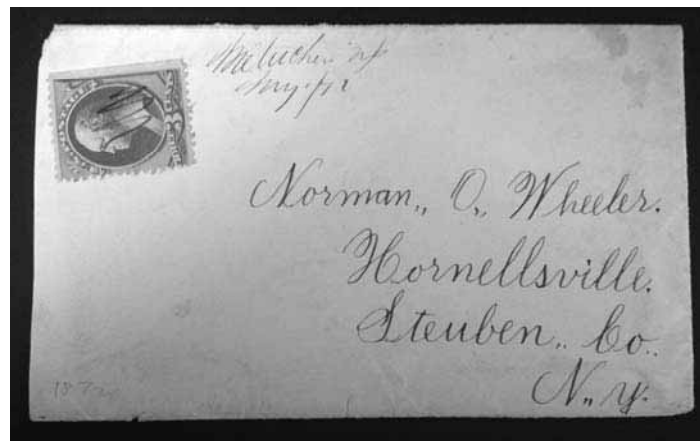 Metuchen NJ
Norman,, O,, Wheeler.
Hornellsville.
Steuben,, Co..
N,, Y.
187